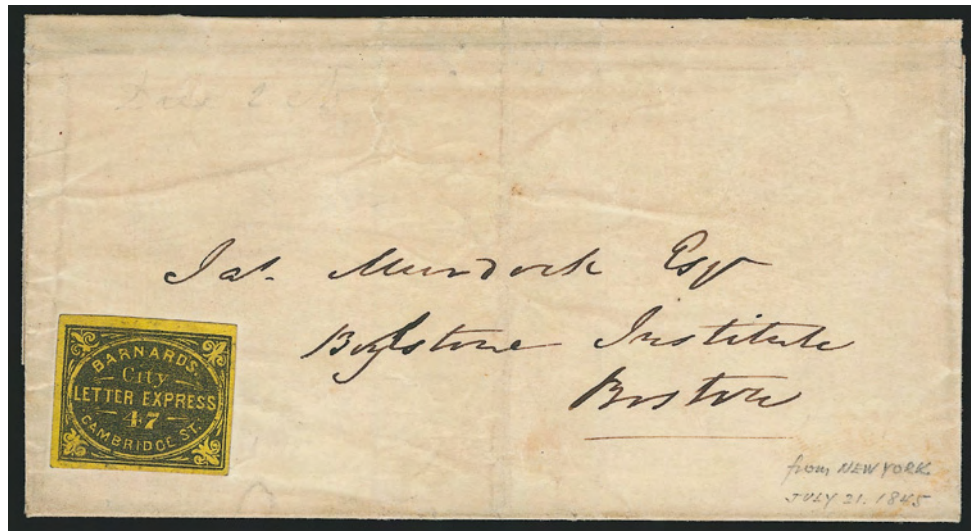 2 cts
Jas. Murdock Esqr
Boylstone Institute
Boston
BARNARDS.
City
LETTER EXPRESS
47
CAMBRIDGE ST.
from NEW YORK
JULY 21. 1845